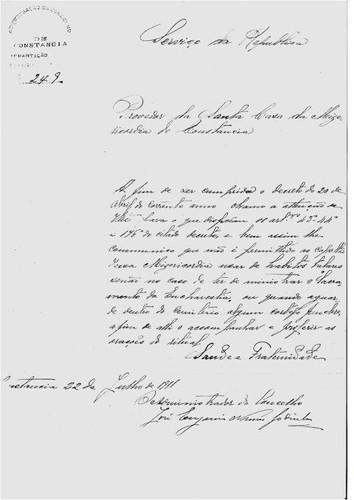 ADMINISTRAÇÃO DO CONCELHO
DE
CONSTANCIA
REPARTIÇÃO
249
Serviço da Republica
Provedor da Santa Casa da Mizericordia de Constancia
A fim de ser cumprido o decreto de 20 de
Abril do corrente anno chamo a attenção de
para o que dispõem os artos 43º 44º
e 176º do citado decreto, e bem assim lhe
communico que não é permittido ao capellão
dessa Mizericordia usar de habitos talares
senão no caso de ter de ministrar o Sacra
mento da Eucharestia, ou quando aguar
de dentro do cemiterio algum cortejo funebre,
a fim de ali o acompanhar e proferir as
orações do ritual.
Saude e Fraternidade
Constancia 22 de Julho de 1911
O Administrador do Concelho
José Eugenio